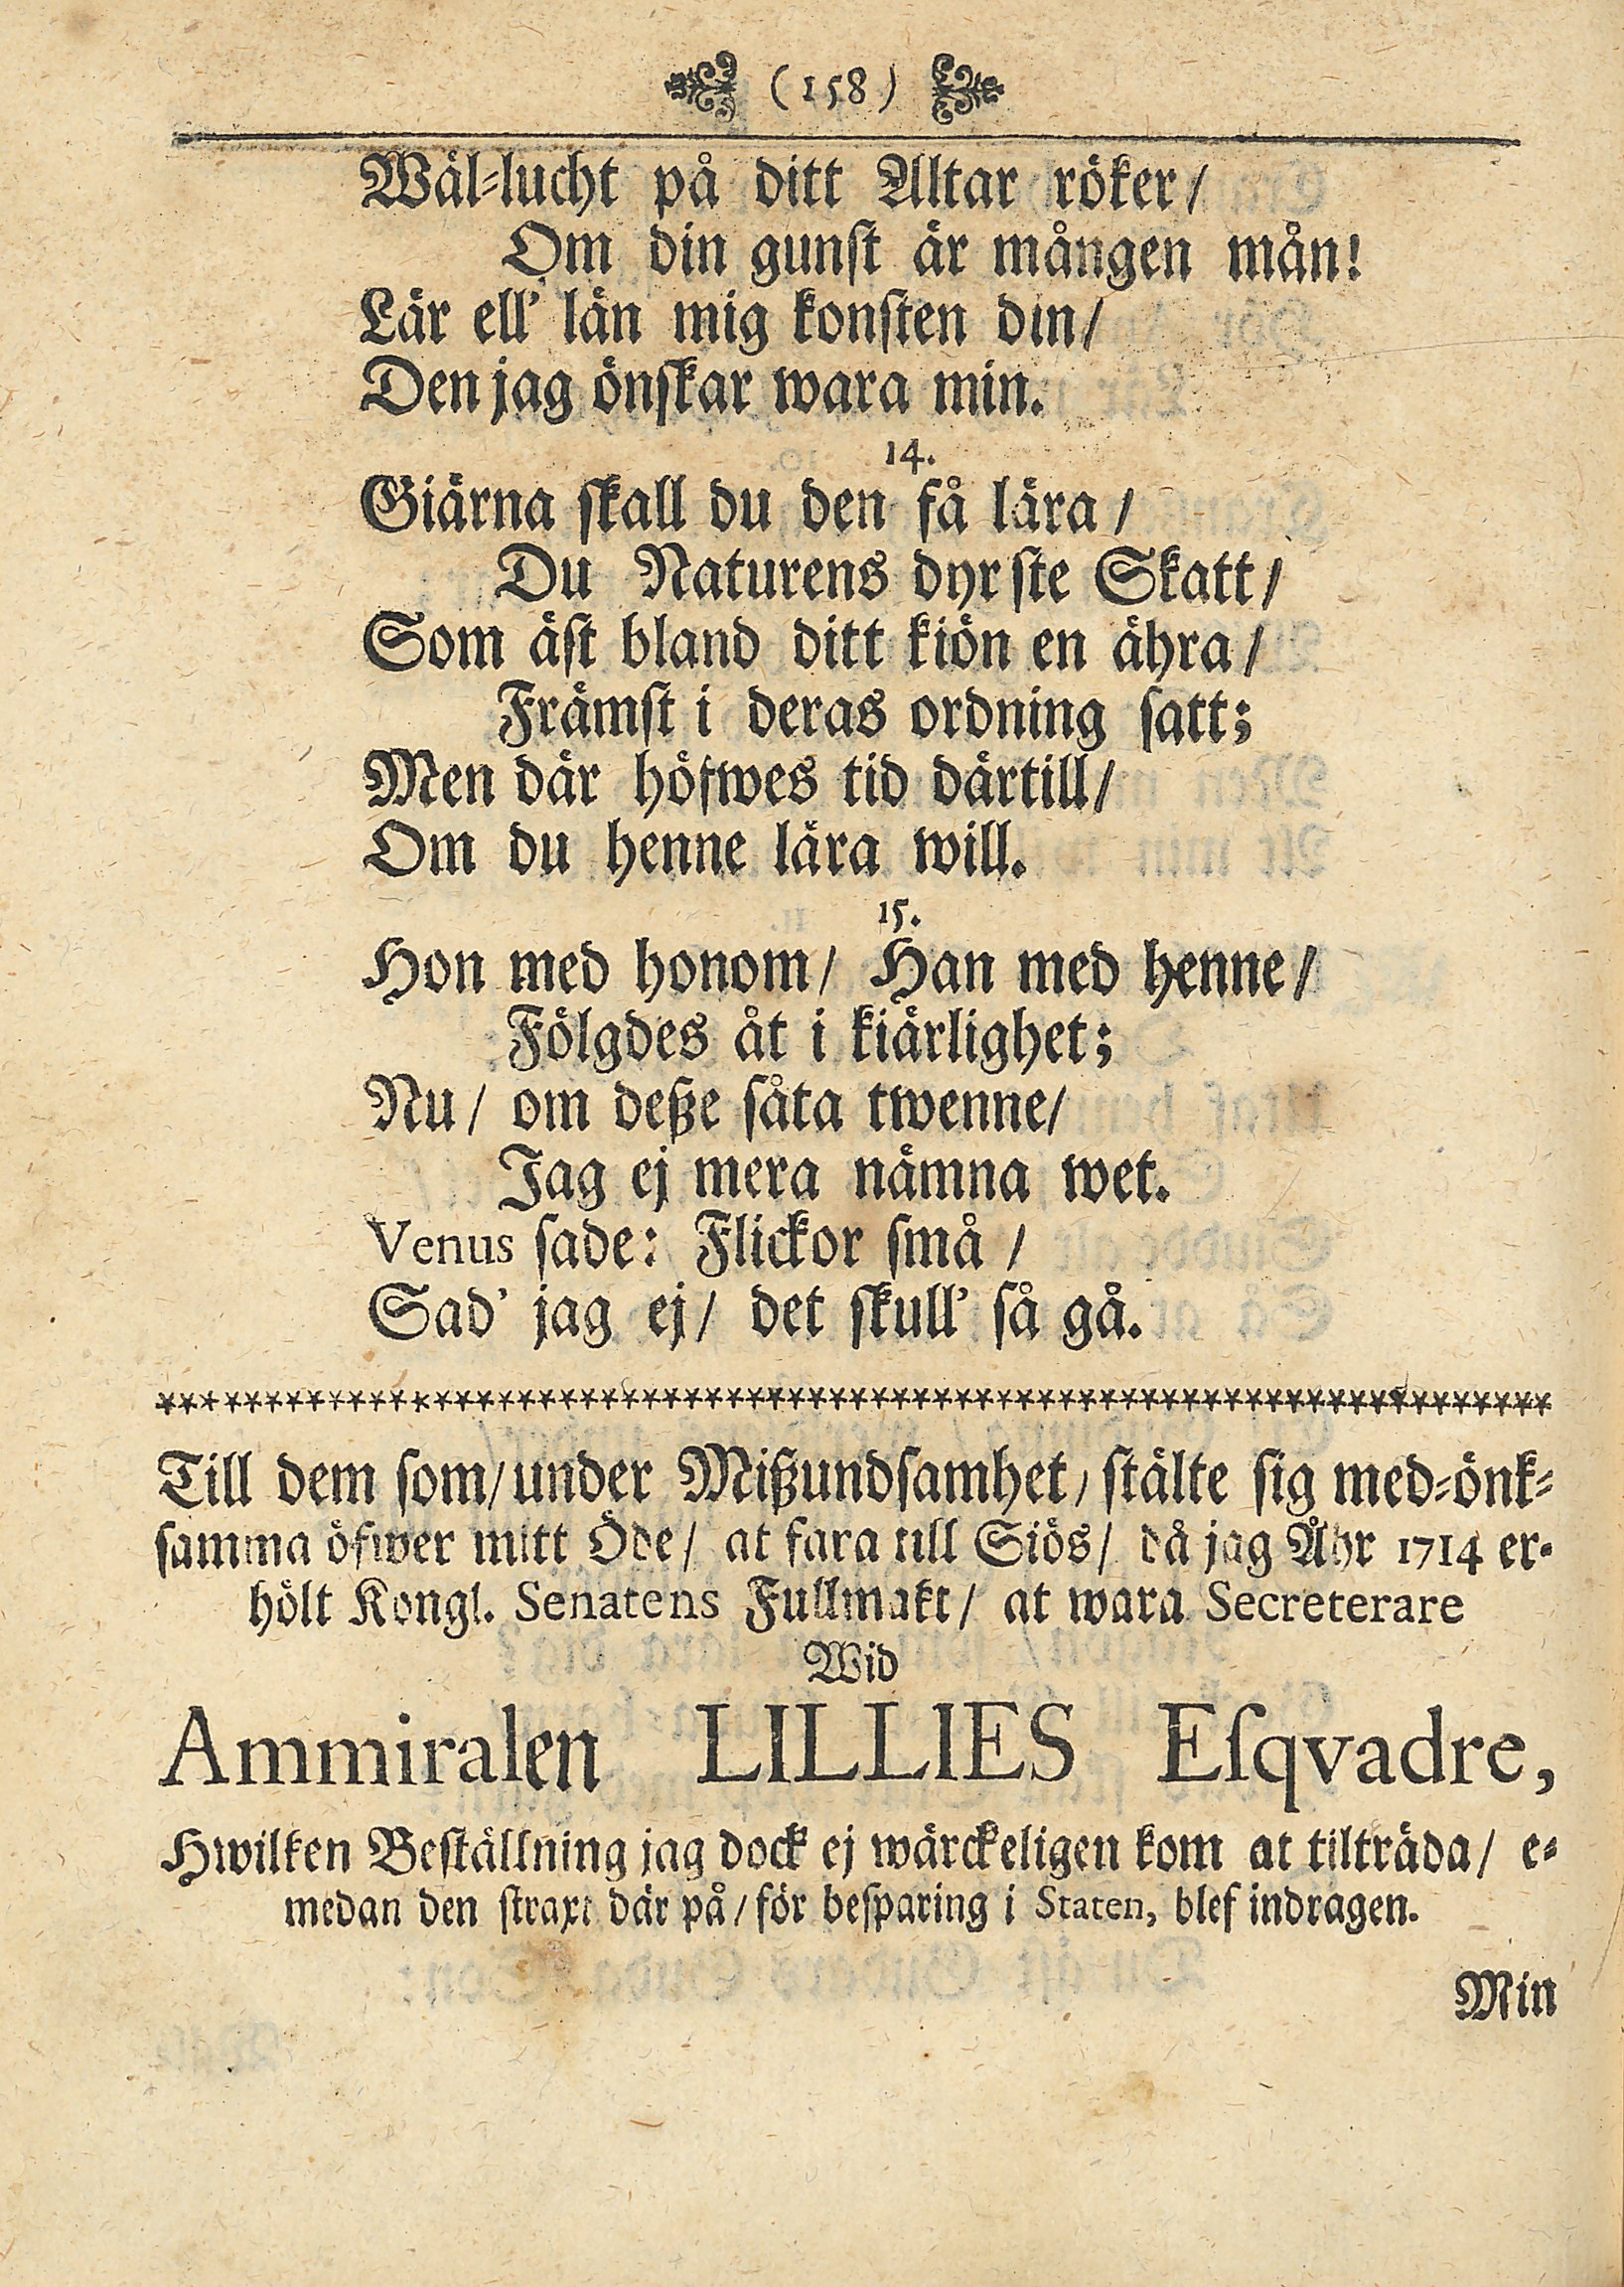 (158)
Wäl-lucht på ditt Altar röker/
Om din gunst är mången mån!
Lär ell' län mig konsten din/
Den jag önskar wara min.
14.
Giärna skall du den få lära/
Du Naturens dyrste Skatt/
Som äst bland ditt kiön en ähra/
Främst i deras ordning satt;
Men där höfwes tid därtill/
Om du henne lära will.
15.
Hon med honom/ Han med henne/
Fölgdes åt i kiärlighet;
Nu/ om deße såta twenne/
Jag ej mera nämna wet.
Venus sade: Flickor små/
Sad' jag ej/ det skull' så gå.
Till dem som/ under Mißundsamhet/ stälte sig med-önk-
samma öfwer mitt Öde/ at fara till Siös/ då jag Åhr 1714 er-
hölt Kongl. Senatens Fullmakt/ at wara Secreterare
Wid
Ammiralen LILLIES Esqvadre,
Hwilken Beställning jag dock ej wärckeligen kom at tilträda/ e-
medan den straxt där på/ för besparing i Staten, blef indragen.
Min